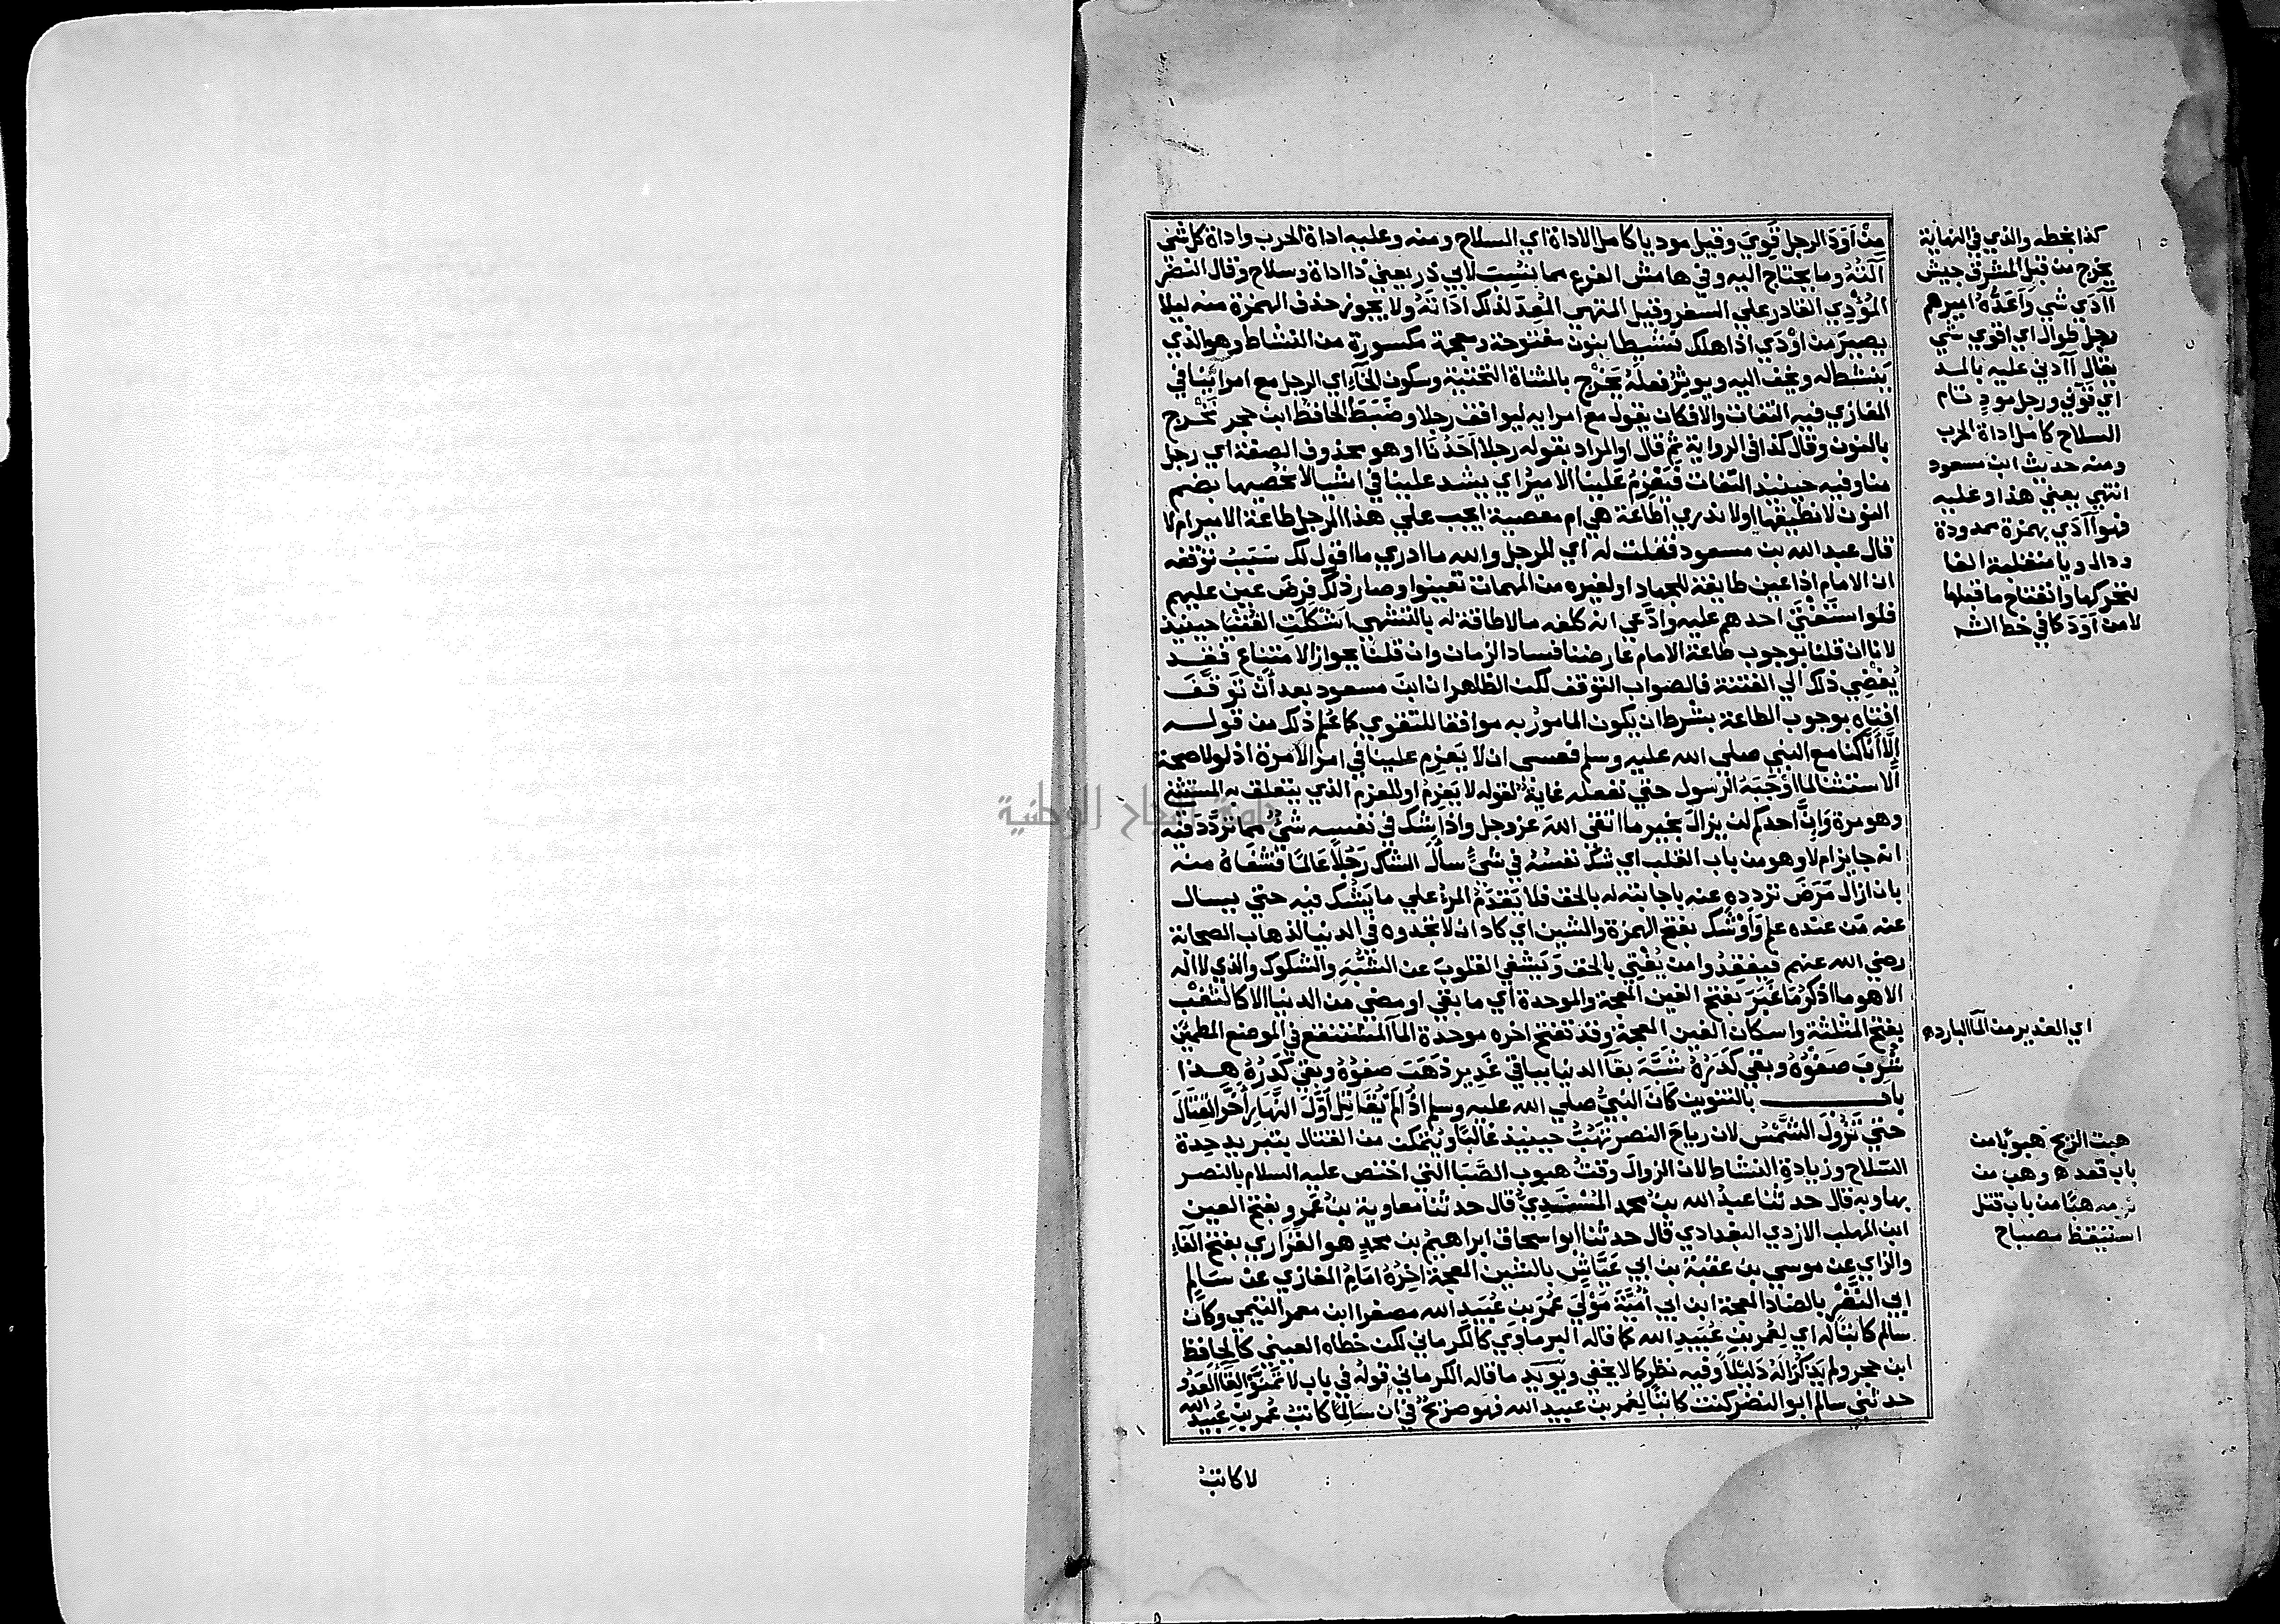 مِنْ آوَدَ الرجل قَوِيَ وقيل موديا كامل الاداة اي السلاح ومنه وعليه اداة الحرب واداة كل شي
آلتُهُ وما يحتاج اليه وفي هامش الفرع مما نُسِبَ لابي ذر يعني ذا اداة وسلاح وقال النضر
المُؤْدِي القادر علي السفر وقيل المتهيي المُعِدّ لذلك اداتَهُ ولا يجوز حذف الهمزة منه ليلا
يصير من اَوْدَي اذا هلك نشيطا بنون مفتوحة ومعجمة مكسورة من النشاط وهو الذي
يَنشط له ويخف اليه ويوثر فعله يَخْرُج بالمثناة التحتية وسكون الخاء اي الرجل مع امراينا في
المغازي فيه التفات والا فكان يقول مع امرايه ليوافق رجلا وضَبَطَ الحافظ ابن حجر نَخْرج
بالنون وقال كذا في الرواية ثم قال او المراد بقوله رجلا اَحَدُنَا او هو محذوف الصفة اي رجل
منا وفيه حينيد التفات فيَعْزِمُ عَلينا الاميرُ اي يشد علينا في اشيا لا نحصيها بضم
النون لا نطيقها او لا ندري اطاعة هي ام معصية ايجب علي هذا الرجل طاعة الامير ام لا
قال عبد الله بن مسعود فقلت له اي للرجل والله ما ادري ما اقول لك سَبَبُ توقفه
ان الامام اذا عين طايفة للجهاد او لغيره من المهمات تعينوا وصار ذلك فرضَ عين عليهم
فلو استَفْتَي احدهم عليه وادَّعي انه كلفه ما لا طاقة له به بالتشهي اَشْكَلَتِ الفُتْيَا حينيذ
لانا ان قلنا بوجوب طاعة الامام عارضنا فساد الزمان وان قلنا بجواز الامتناع فقد
يُفْضِي ذلك الي الفتنة فالصواب التوقف لكن الظاهر ان ابن مسعود بعد اَن تَوَقَّفَ
افتاه بوجوب الطاعة بشرط ان يكون المامورُ به موافقا للتقوي كما عُلِم ذلك من قوله
اِلَّا اَنَّا كنا مع النبي صلي الله عليه وسلم فعسي ان لا يَعْزِم علينا في امر الا مرة اذ لولا صحة
الاستثنا لما اَوْجَبَهُ الرسول حتي نفعله غاية لقوله لا يَعْزِمُ او للعزم الذي يتعلق به المستثني
وهو مرة وَاِنَّ احدكم لن يزال بخير ما اتقي اللهَ عز وجل واذا شك في نفسه شيٌ مما تَرَدَّد فيه
انه جايز ام لا وهو من باب القلب اي شكّ نفسُهُ في شيٍ سال الشاك رَجُلاً عَالِمًا فشفاهُ منه
بان ازال مَرَضَ تردده عنه باجابته له بالحق فلا يَقدَمُ المرءُ علي ما يَشُك فيه حتي يسال
عنه مَن عنده علم وَاَوْشَك بفتح الهمزة والشين اي كاد ان لا تجدوه في الدنيا لذهاب الصحابة
رضي الله عنهم فيفقِدُوا من يُفْتِي بالحق وَيَشفي القلوبَ عن الشُّبَهِ والشكوك والذي لا اله
الا هو ما اذكر مَا غَبَرَ بفتح الغين المعجمة والموحدة اي ما بقي او مضي من الدنيا الا كالثَغْب
بفتح المثلثة واسكان الغين المعجمة وقد تفتح اخره موحدة الماء المستنقع في الموضع المطمين
شُرِبَ صَفوُهُ وبقي كَدَرُهُ شَبَّهَ بقاَ الدنيا بباقي غَدِير ذَهَبَ صَفوُهُ وبقي كَدَرُهُ هذا
باب بالتنوين كَانَ النبيُّ صلي الله عليه وسلم اذا لَمْ يُقاتِل اَوَّلَ النَّهارِ اَخَّرَ القِتَالَ
حتي تَزُولَ الشَّمْس لان رياحَ النصر تَهُبُّ حينيذ غالبًا ويُتمكن من القتال بتبريد حِدة
السّلاح وزيادةِ النشاط لان الزوال وقتُ هبوب الصَّبَا التي اختص عليه السلام بالنصر
بها وبه قال حدثنا عبدُ الله بنُ محمد المُسْنَدِيُّ قال حدثنا معاوية بنُ عَمرو بفتح العين
ابن المهلب الازدي البغدادي قال حدثنا ابو اسحاق ابراهيمُ بن محمدٍ هو الفزاري بفتح الفاء
والزاي عن موسي بن عقبة بن ابي عَيَّاش بالشين المعجمة اخِرُهُ امَامُ المغازي عن سَالِمٍ
ابي النَّضْرِ بالضاد المعجمة ابن ابي اُمَيَّة مَوْلَي عُمَرَ بن عُبَيد الله مصغرا ابن معمر التيمي وكان
سالم كاتبًا له اي لِعُمر بن عُبَيدِ الله كما قاله البرماوي كالكرماني لكن خطاه العيني كالحافظ
ابن حجر ولم يَذكُرَا لهُ دَلِيلًا وفيه نظر كما لا يخفي ويويد ما قاله الكرماني قولُهُ في باب لا تَمَنَّوْا لِقَا العَدُو
حدثني سالم ابو النضر كنت كاتبًا لِعُمر بن عبيد الله فهو صريحٌ في ان سَالِمًا كاتبُ عُمر بن عُبيد الله
لا كاتبُ
كذا بخطه والذي في النهاية
يخرج من قبل المشرق جيش
آادَي شي وَاَعَدُّهُ اميرهم
رجل طوال اي اقوي شي
يقال آادني عليه بالمد
اي قَوِّني ورجل مودٍ تام
السلاح كامل اداة الحرب
ومنه حديث ابن مسعود
انتهي يعني هذا وعليه
فهو آادي بهمزة ممدودة
ودال ويا منقلبة الفا
لتحركها وانفتاح ما قبلها
لا من آوَدَ كما في خط الش
اي الغدير من الماء البارد ه
هبت الريح هبوبا من
باب قعد ه وهب من
نومه هبًا من باب قتل
استيقظ مصباح
جامعة النجاح الوطنية